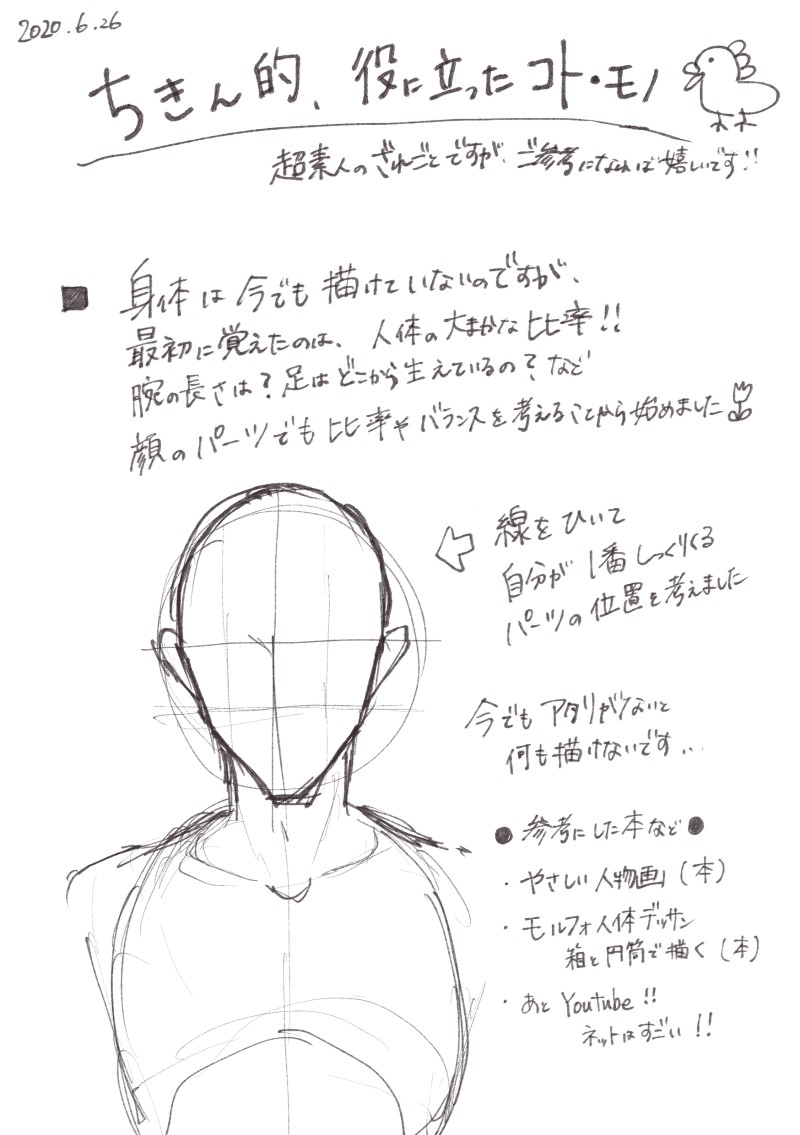 2020.6.26
ちきん的、役に立ったコト・モノ
超素人のざれごとですが、ご参考になれば嬉しいです!!
■ 身体は今でも描けていないのですが、
最初に覚えたのは、人体の大まかな比率!!
腕の長さは?足はどこから生えているの?など
顔のパーツでも比率やバランスを考えることから始めました
線をひいて
自分が1番しっくりくる
パーツの位置を考えました
今でもアタリがないと
何も描けないです...
● 参考にした本など ●
・やさしい人物画(本)
・モルフォ人体デッサン
箱と円筒で描く(本)
・あと Youtube!!
ネットはすごい!!